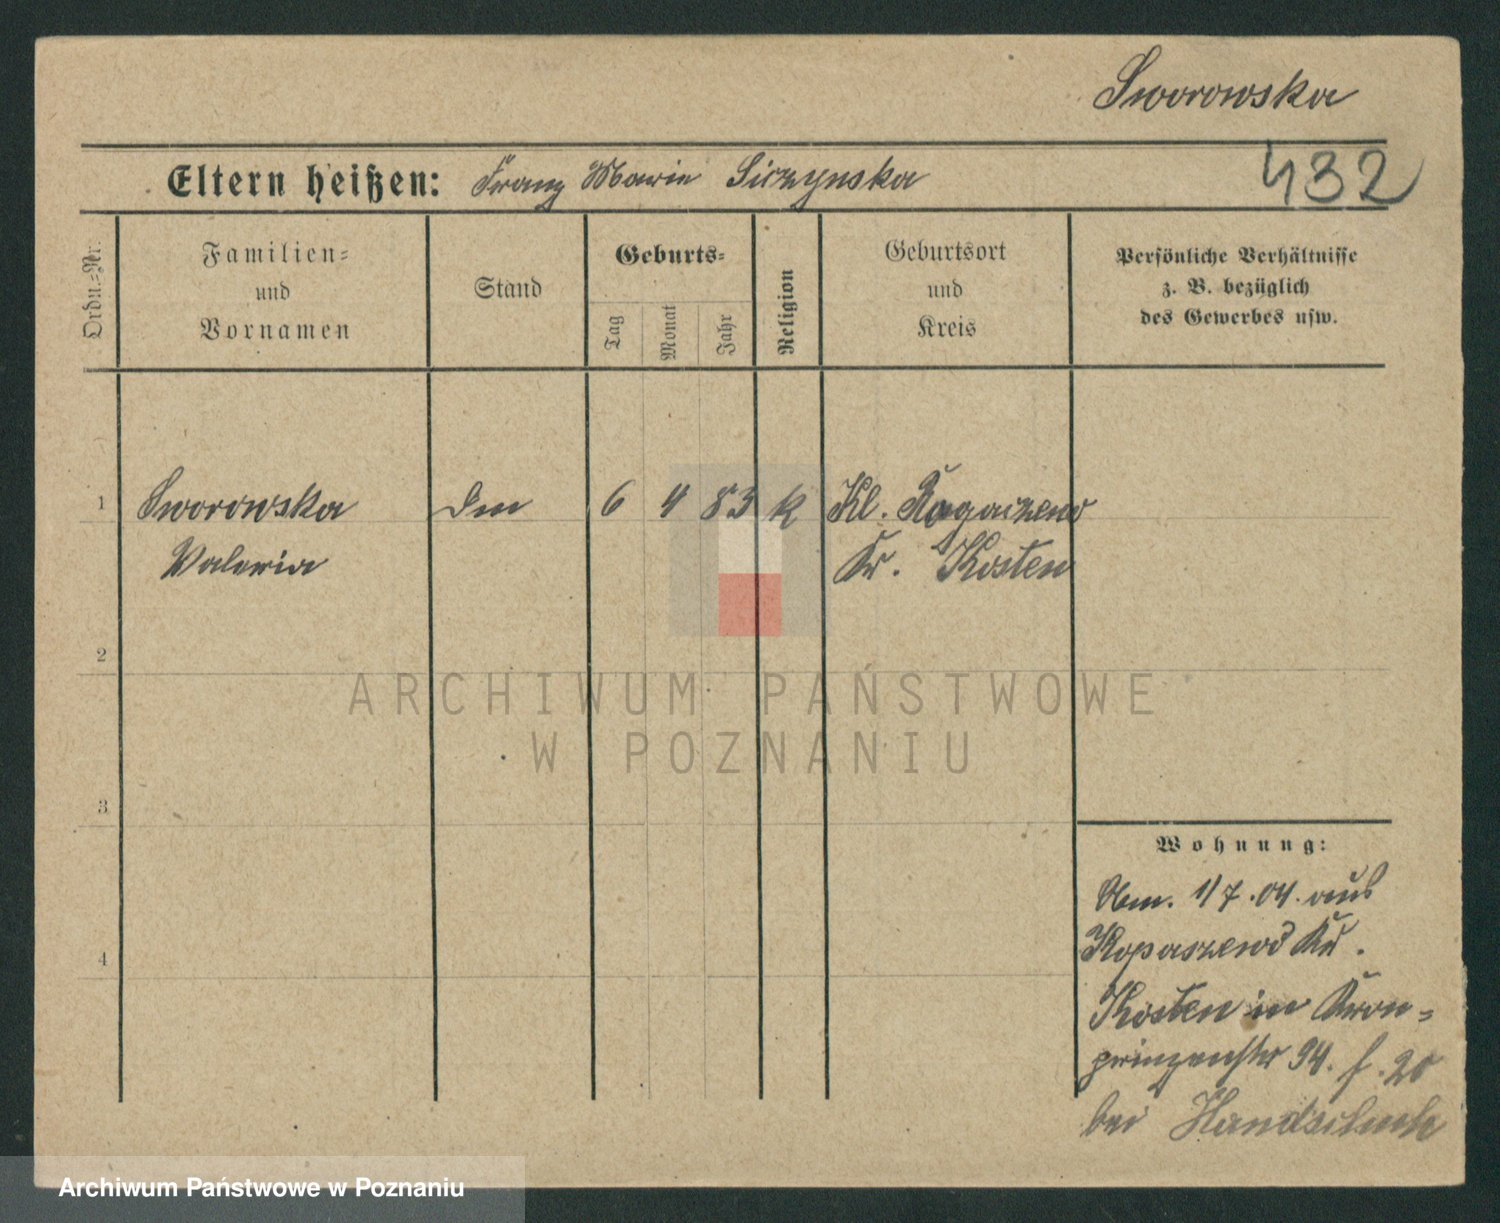 Sworowska
432
Eltern heißen: Franz Marie Siczynska
Ordn.-Nr.
Familien-
und
Vornamen
Stand
Geburts-
Tag
Monat
Jahr
Religion
Geburtsort
und
Kreis
Persönliche Verhältnisse
z. B. bezüglich
des Gewerbes usw.
1 Sworowska 6 4 83 k Kl.
Valeria Kr. Kosten
2
3
4
Wohnung:
1/7.04. aus
Kopaszewo Kr.
Kosten in Kron-
prinzenstr 94. f. 20
bei Handschuh
ARCHIWUM PAŃSTWOWE
W POZNANIU
Archiwum Państwowe w Poznaniu